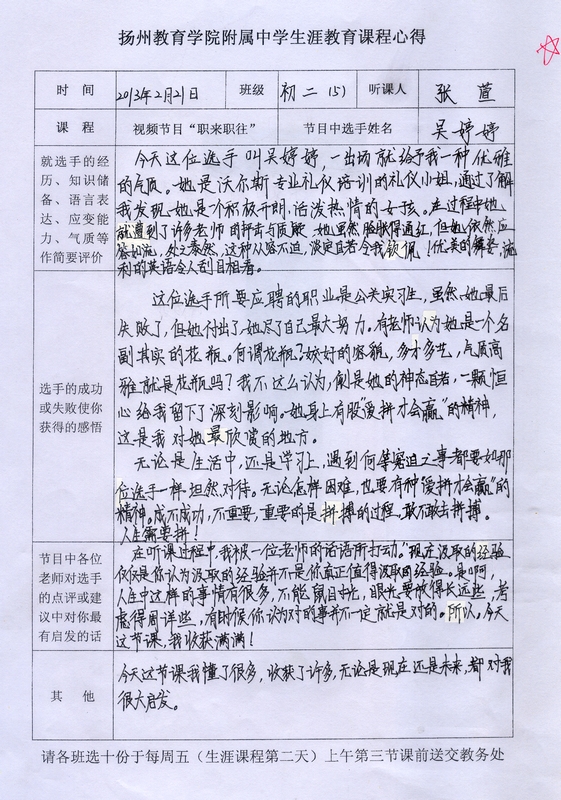 扬州教育学院附属中学生涯教育课程心得
时 间 2013年2月21日 班级 初二(5) 听课人 张萱
课 程 视频节目“职来职往” 节目中选手姓名 吴婷婷
就选手的经
历、知识储
备、语言表
达、应变能
力、气质等
作简要评价
今天这位选手叫吴婷婷,一出场就给予我一种优雅
的气质。她是沃尔斯专业礼仪培训的礼仪小姐,通过了解
我发现,她是个积极开朗,活泼热情的女孩。在过程中她
就遭到了许多老师的抨击与质疑,她虽然脸涨得通红,但她依然应
答如流,处之泰然,这种从容不迫,淡定自若令我钦佩!优美的舞姿,流
利的英语令人刮目相看。
选手的成功
或失败使你
获得的感悟
这位选手所要应聘的职业是公关实习生,虽然她最后
失败了,但她付出了,她尽了自己最大努力。有老师认为她是一个名
副其实的花瓶。何谓花瓶?姣好的容貌,多才多艺,气质高
雅就是花瓶吗?我不这么认为,倒是她的神态自若,一颗恒
心给我留下了深刻影响。她身上有股“爱拼才会赢”的精神,
这是我对她最欣赏的地方。
无论是生活中,还是学习上,遇到何等窘迫之事都要如那
位选手一样坦然对待。无论怎样困难,也要有种“爱拼才会赢”的
精神。成不成功,不重要,重要的是拼搏的过程,敢不敢去拼搏。
人生需要拼!
节目中各位
老师对选手
的点评或建
议中对你最
有启发的话
在听课过程中,我被一位老师的话语所打动。“现在汲取的经验
仅仅是你认为汲取的经验并不是你真正值得汲取的经验。是啊,
人生中这样的事情有很多,不能鼠目寸光,眼光要放得长远些,考
虑得周详些,有时候你认为对的事并不一定就是对的。所以,今天
这节课,我收获满满!
其 他
今天这节课我懂了很多,收获了许多,无论是现在还是未来,都对我
很大启发。
请各班选十份于每周五(生涯课程第二天)上午第三节课前送交教务处